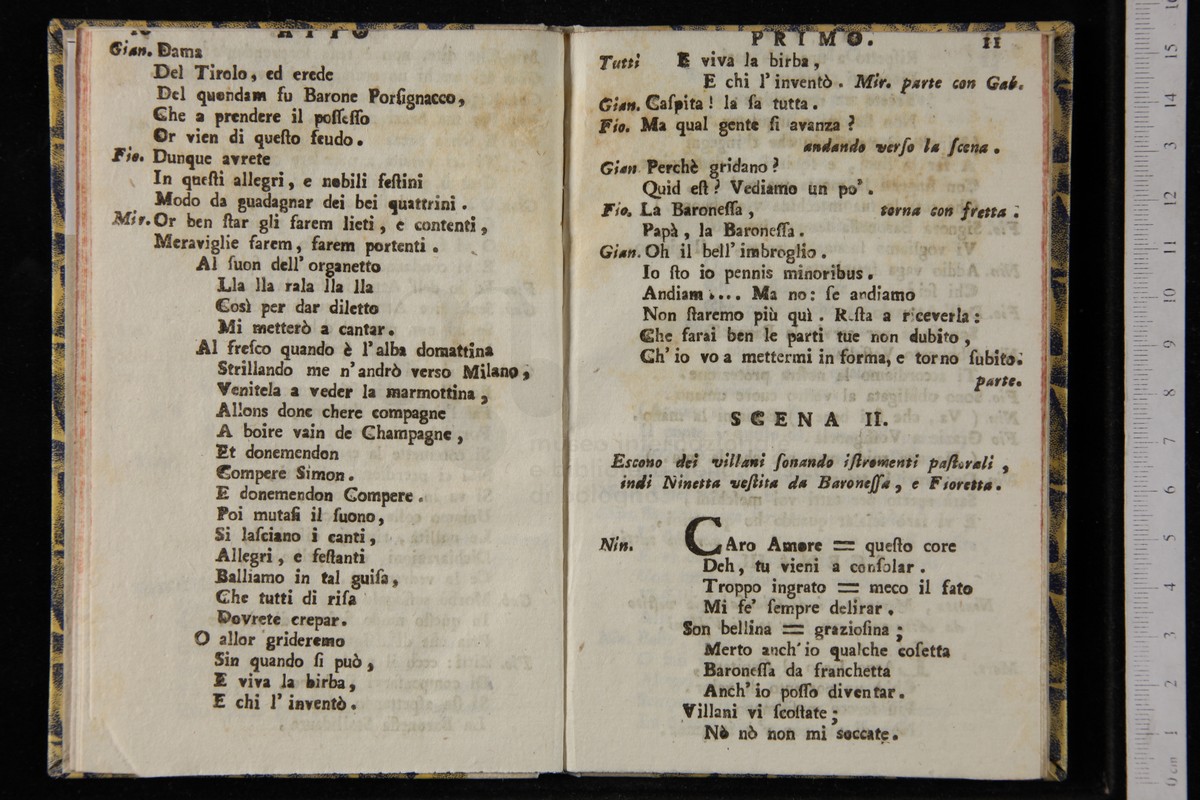 10 ATTO
Gian. Dama
Del Tirolo, ed erede
Del quondam fu Barone Porſignacco,
Che a prendere il poſſeſſo
Or vien di queſto feudo.
Fio. Dunque avrete
In queſti allegri, e nobili feſtini
Modo da guadagnar dei bei quattrini.
Mir. Or ben ſtar gli farem lieti, e contenti,
Meraviglie farem, farem portenti.
Al ſuon dell' organetto
Lla lla rala lla lla
Così per dar diletto
Mi metterò a cantar.
Al freſco quando è l'alba domattina
Strillando me n'andrò verso Milano,
Venitela a veder la marmottina,
Allons donc chere compagne
A boire vain de Champagne,
Et donemendon
Compere Simon.
E donemendon Compere.
Poi mutaſi il ſuono,
Si laſciano i canti,
Allegri, e feſtanti
Balliamo in tal guiſa,
Che tutti di riſa
Dovrete crepar.
O allor grideremo
Sin quando ſi può,
E viva la birba,
E chi l' inventò.
PRIMO. 11
Tutti E viva la birba,
E chi l'inventò. Mir. parte con Gab.
Gian. Caſpita! la ſa tutta.
Fio. Ma qual gente ſi avanza?
andando verſo la ſcena.
Gian. Perchè gridano?
Quid eſt? Vediamo un po'.
Fio. La Baroneſſa, torna con fretta.
Papà, la Baroneſſa.
Gian. Oh il bell' imbroglio.
Io ſto io pennis minoribus.
Andiam.... Ma no: ſe andiamo
Non ſtaremo più quì. Reſta a riceverla:
Che farai ben le parti tue non dubito,
Ch' io vo a mettermi in forma, e torno ſubito.
parte.
SCENA II.
Eſcono dei villani ſonando iſtromenti paſtorali,
indi Ninetta veſtita da Baroneſſa, e Fioretta.
Nin. CAro Amore = queſto core
Deh, tu vieni a conſolar.
Troppo ingrato = meco il fato
Mi fe' ſempre delirar.
Son bellina = grazioſina;
Merto anch' io qualche coſetta
Baroneſſa da franchetta
Anch' io poſſo diventar.
Villani vi ſcoſtate;
Nò nò non mi soccate.